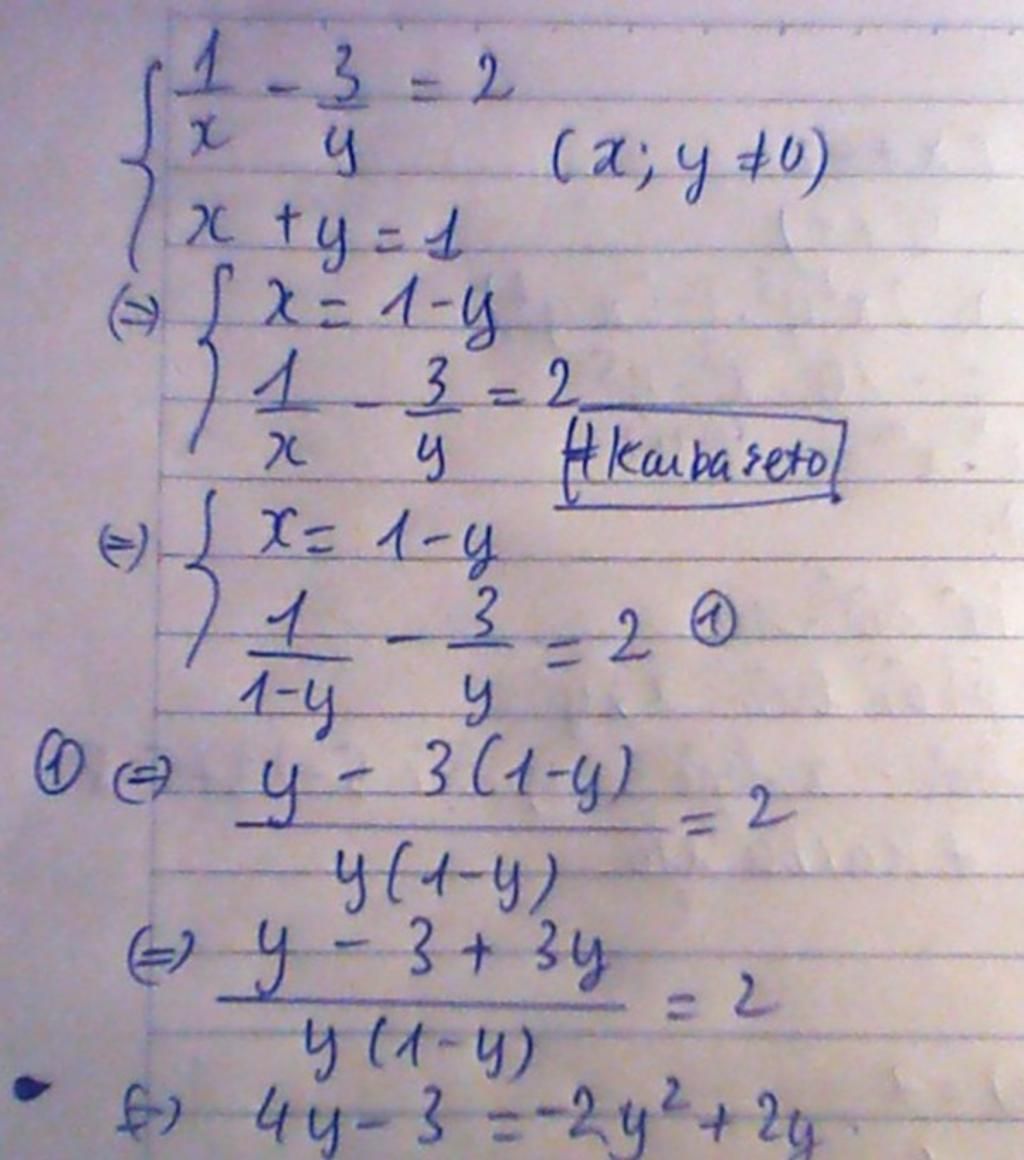 { 1/x - 3/y = 2 (x; y ≠ 0)
x + y = 1
(=) { x = 1-y
1/x - 3/y = 2
#Kaibaseto
(=) { x = 1-y
1/(1-y) - 3/y = 2 ①
① (=) (y - 3(1-y))/(y(1-y)) = 2
(=) (y - 3 + 3y)/(y(1-y)) = 2
(=) 4y - 3 = -2y² + 2y